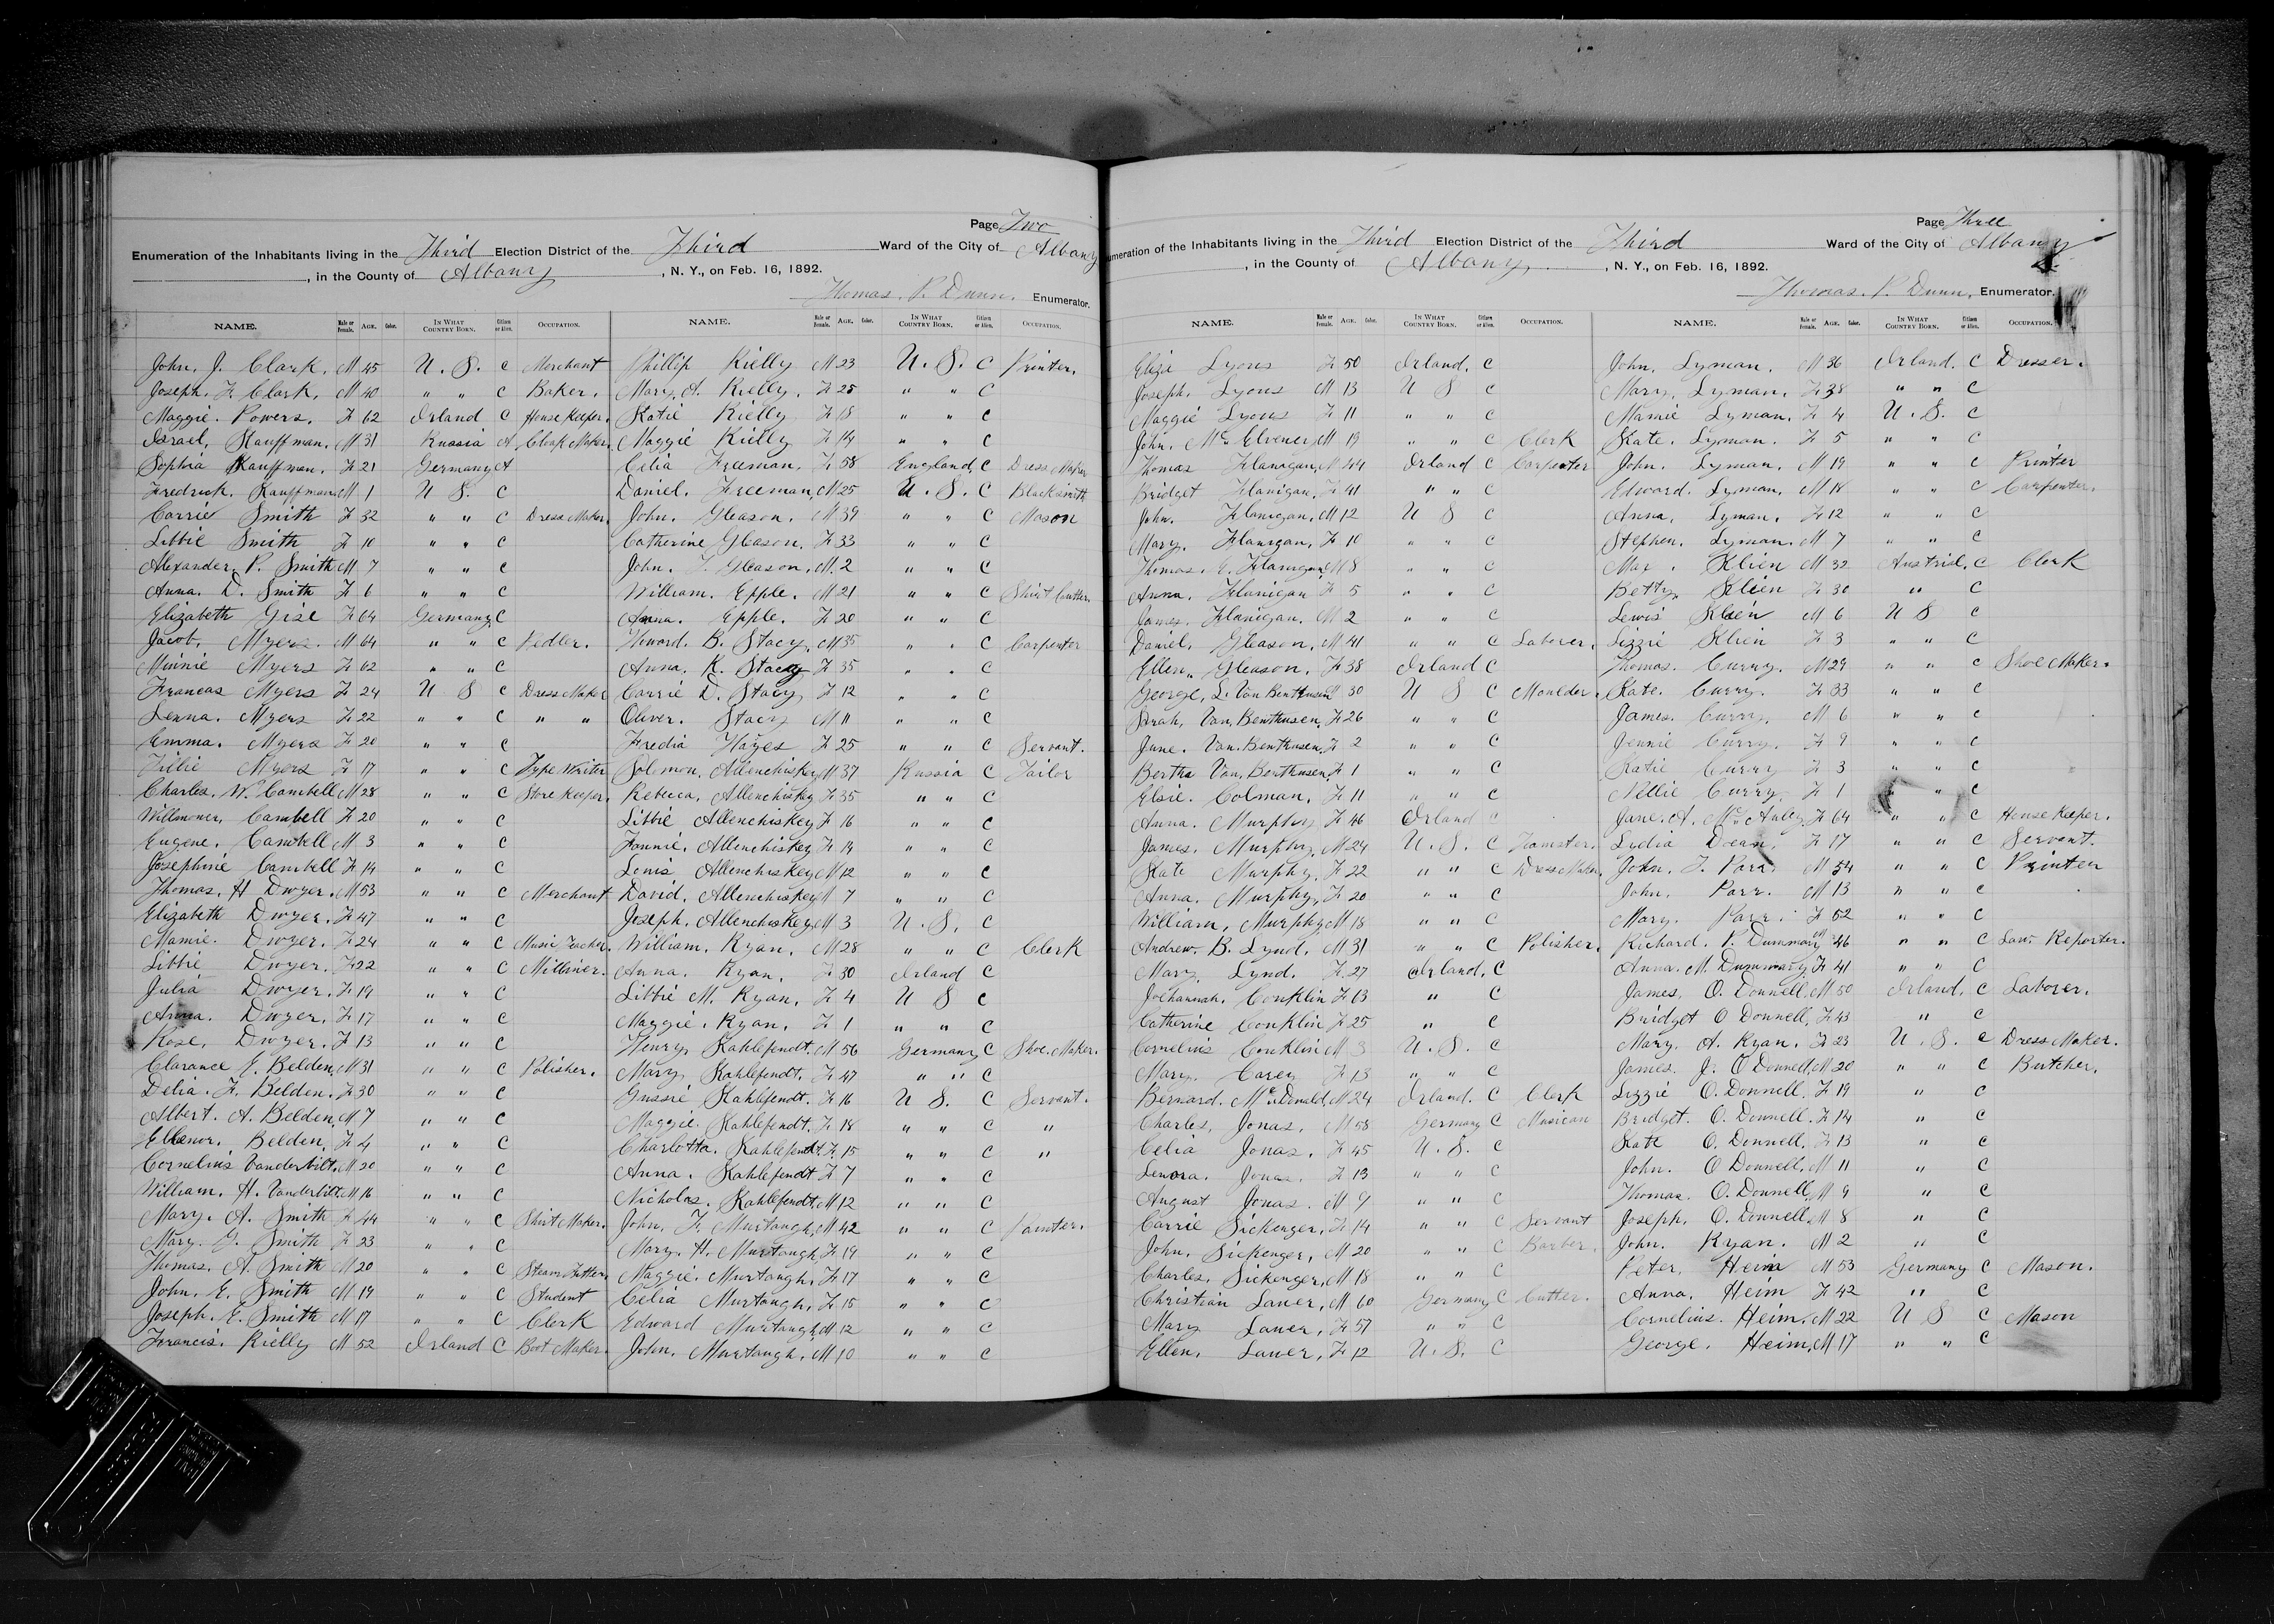 Page Two
Enumeration of the Inhabitants living in the Third Election District of the Third Ward of the City of Albany
, in the County of Albany, N. Y., on Feb. 16, 1892.
Thomas. P. Dunn. Enumerator.
NAME. Male or Female. AGE. Color. IN WHAT COUNTRY BORN. Citizen or Alien. OCCUPATION.
John. J. Clark. M 45 U. S. C Merchant
Joseph. F. Clark. M 40 " " C Baker.
Maggie. Powers. F 62 Irland C House Keeper.
Israel. Kauffman. M 31 Russia A Cloak Maker.
Sophia Kauffman. F 21 Germany A
Fredrick. Kauffman M 1 U S. C
Carrie Smith F 32 " " C Dress Maker.
Libbie Smith F 10 " " C
Alexander. P. Smith M 7 " " C
Anna. D. Smith F 6 " " C
Elizabeth Gise F 64 Germany C
Jacob. Myers. M 64 " " C Pedler.
Minnie Myers F 62 " " C
Francas Myers F 24 U S C Dress Maker
Lenna. Myers F 22 " " C " "
Emma. Myers F 20 " " C
Tillie Myers F 17 " " C Type Writer
Charles. W. Cambell M 28 " " C Store Keeper.
Willmoner. Cambell F 20 " " C
Eugene. Cambell M 3 " " C
Josephine Cambell F 14 " " C
Thomas. H Dwyer. M 53 " " C Merchant
Elizabeth Dwyer. F 47 " " C
Mamie. Dwyer. F 24 " " C Music Teacher.
Libbie Dwyer. F 22 " " C Milliner.
Julia Dwyer. F 19 " " C
Anna. Dwyer. F 17 " " C
Rose. Dwyer. F 13 " " C
Clarance E. Belden. M 31 " " C Polisher.
Delia. F. Belden. F 30 " " C
Albert. A. Belden. M 7 " " C
Elleanor. Belden. F 4 " " C
Cornelius Vanderbilt. M 20 " " C
William. H. Vanderbilt. M 16 " " C
Mary. A. Smith F 44 " " C Shirt Maker.
Mary. J. Smith F 23 " " C
Thomas. A. Smith M 20 " " C Steam Fitter.
John. E. Smith M 19 " " C Student
Joseph. E. Smith M 17 " " C Clerk
Francis. Rielly M 52 Irland C Boot Maker.
NAME. Male or Female. AGE. Color. IN WHAT COUNTRY BORN. Citizen or Alien. OCCUPATION.
Phillip Rielly M 23 U. S. C Printer.
Mary. A. Rielly. F 25 " " C
Katie Rielly F 18 " " C
Maggie Rielly F 14 " " C
Celia Freeman. F 58 England C Dress Maker
Daniel. Freeman. M 25 U. S. C Blacksmith
John. Gleason. M 39 " " C Mason
Catherine Gleason. F 33 " " C
John. T. Gleason. M. 2 " " C
William. Epple. M 21 " " C Shirt Cutter.
Anna. Epple. F 20 " " C
Howard. B. Stacy. M 35 " " C Carpenter
Anna. K. Stacy F 35 " " C
Carrie D. Stacy F 12 " " C
Oliver. Stacy M 11 " " C
Fredia Hayes F 25 " " C Servant.
Solomon. Allenchiskey M 37 Russia C Tailor
Rebeca. Allenchiskey F 35 " " C
Libbie Allenchiskey F 16 " " C
Fannie. Allenchiskey F 14 " " C
Lewis Allenchiskey M 12 " " C
David. Allenchiskey M 7 " " C
Joseph. Allenchiskey M 3 U. S. C
William. Ryan. M 28 " " C Clerk
Anna. Ryan. F 30 Irland C
Libbie M. Ryan. F 4 U S C
Maggie. Ryan. F 1 " " C
Henry Kahlefendt. M 56 Germany C Shoe. Maker.
Mary Kahlefendt. F 47 " " C
Gussie Kahlefendt. F 16 U S. C Servant.
Maggie. Kahlefendt. F 18 " " C "
Charlotta. Kahlefendt F 15 " " C "
Anna. Kahlefendt F 7 " " C
Nicholas. Kahlefendt. M 12 " " C
John. F. Murtaugh. M 42 " " C Painter.
Mary. H. Murtaugh F 19 " " C
Maggie. Murtaugh. F 17 " " C
Celia Murtaugh. F 15 " " C
Edward Murtaugh M 12 " " C
John. Murtaugh. M 10 " " C
Page Three
umeration of the Inhabitants living in the Third Election District of the Third Ward of the City of Albany
, in the County of Albany, N. Y., on Feb. 16, 1892.
Thomas. P. Dunn. Enumerator.
NAME. Male or Female. AGE. Color. IN WHAT COUNTRY BORN. Citizen or Alien. OCCUPATION.
Eliza Lyons F 50 Irland. C
Joseph. Lyons M 13 U S C
Maggie Lyons F 11 " " C
John. Mc Elvener M 19 " " C Clerk
Thomas Flanigan. M 44 Irland C Carpenter
Bridget Flanigan. F 41 " " C
John. Flanigan. M 12 U S C
Mary. Flanigan. F 10 " " C
Thomas. E. Flanigan. M 8 " " C
Anna. Flanigan F 5 " " C
James. Flanigan. M 2 " " C
Daniel. Gleason. M 41 " " C Laborer.
Ellen. Gleason. F 38 Irland C
George. L. Van Benthusen M 30 U S C Moulder.
Sarah. Van. Benthusen. F 26 " " C
June. Van. Benthusen. F 2 " " C
Bertha Van. Benthusen. F 1 " " C
Elsie. Colman. F 11 " " C
Anna. Murphy F 46 Irland C
James. Murphy. M 24 U. S. C Teamster.
Kate Murphy. F 22 " " C Dress Maker.
Anna. Murphy. F 20 " " C
William. Murphy M 18 " " C
Andrew. B. Lynd. M 31 " " C Polisher.
Mary. Lynd. F 27 Irland. C
Joehannah. Conklin F 63 " C
Catherine Conklin F 25 " C
Cornelius Conklin M 3 U. S. C
Mary. Carey F 13 " " C
Bernard. Mc Donald. M 24 Irland. C Clerk
Charles. Jonas. M 58 Germany C Musican
Celia Jonas. F 45 U. S. C
Lenora. Jonas. F 13 " " C
August Jonas. M 9 " " C
Carrie Sickenger. F 14 " " C Servant
John. Sickenger. M 20 " " C Barber.
Charles. Sickenger. M 18 " " C
Christian Lauer. M 60 Germany C Cutter.
Mary Lauer. F 57 " " C
Ellen. Lauer. F 12 U. S. C
NAME. Male or Female. AGE. Color. IN WHAT COUNTRY BORN. Citizen or Alien. OCCUPATION.
John. Lyman. M 36 Irland. C Dresser.
Mary. Lyman. F 38 " " C
Mamie Lyman. F 4 U. S. C
Kate. Lyman. F 5 " " C
John. Lyman. M 19 " " C Printer
Edward. Lyman. M 18 " " C Carpenter.
Anna. Lyman. F 12 " " C
Stephen. Lyman. M 7 " " C
Max. Klien M 32 Austria. C Clerk
Betty. Klien F 30 " C
Lewis Klien M 6 U S C
Lizzie Klien F 3 " " C
Thomas. Curry. M 29 " " C Shoe Maker.
Kate. Curry. F 33 " " C
James. Curry. M 6 " " C
Jennie Curry. F 9 " " C
Katie Curry F 3 " " C
Nellie Curry. F 1 " " C
June. A. Mc Auley. F 64 " " C House Keeper.
Lydia Dean. F 17 " " C Servant.
John. J. Parr. M 54 " " C Printer
John. Parr. M 13 " " C
Mary. Parr. F 52 " " C
Richard. P. Dummary M 46 " " C Law. Reporter.
Anna. M. Dummary. F 41 " " C
James. O. Donnell. M 50 Irland. C Laborer.
Bridget O Donnell. F 43 " C
Mary. A. Ryan. F 23 U. S. C Dress Maker.
James. J. O Donnell. M 20 " " C Butcher.
Lizzie O. Donnell. F 19 " C
Bridget. O. Donnell. F 14 " C
Kate O. Donnell. F 13 " C
John. O Donnell. M 11 " C
Thomas. O. Donnell. M 9 " C
Joseph. O. Donnell. M 8 " C
John. Ryan. M 2 " C
Peter. Heim M 53 Germany C Mason.
Anna. Heim F 42 " C
Cornelius. Heim. M 22 U S C Mason
George. Heim. M 17 " " C